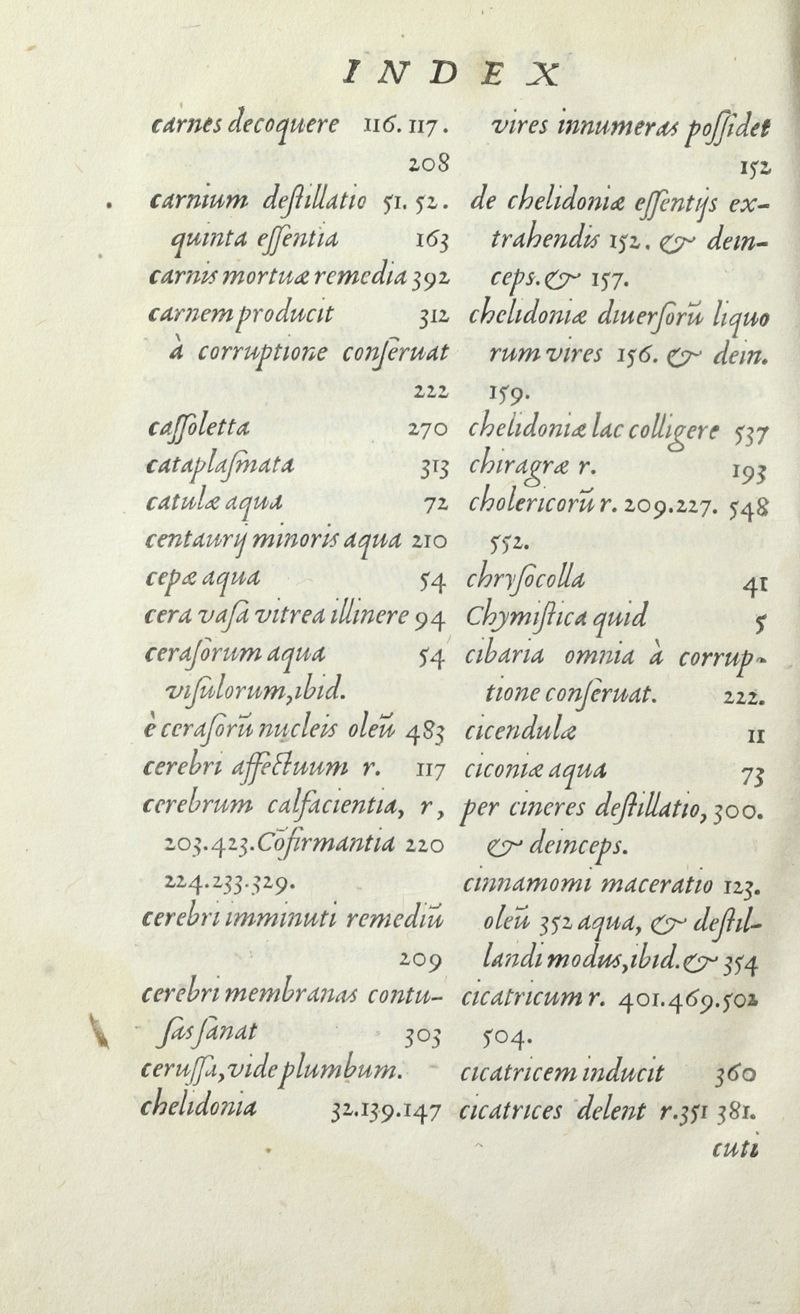 INDEX
carnes decoquere 116. 117.
208
carnium destillatio 51. 52.
quinta essentia 163
carnis mortuæ remedia 392
carnem producit 312
à corruptione conseruat
222
cassoletta 270
cataplasmata 313
catulæ aqua 72
centaurij minoris aqua 210
cepæ aqua 54
cera vasa vitrea illinere 94
cerasorum aqua 54
visulorum, ibid.
è cerasorū nucleis oleū 483
cerebri affectuum r. 117
cerebrum calfacientia, r,
203.423. Cōfirmantia 220
224.233.329.
cerebri imminuti remediū
209
cerebri membranas contu-
sas sanat 303
cerussa, vide plumbum.
chelidonia 32.139.147
vires innumeras possidet
152
de chelidoniæ essentijs ex-
trahendis 152. & dein-
ceps. & 157.
chelidoniæ diuersorū liquo
rum vires 156. & dein.
159.
chelidoniæ lac colligere 537
chiragræ r. 193
cholericorū r. 209.227. 548
552.
chrysocolla 41
Chymistica quid 5
cibaria omnia à corrup-
tione conseruat. 222.
cicendulæ 11
ciconiæ aqua 73
per cineres destillatio, 300.
& deinceps.
cinnamomi maceratio 123.
oleū 352 aqua, & destil-
landi modus, ibid. & 354
cicatricum r. 401.469.502
504.
cicatricem inducit 360
cicatrices delent r. 351 381.
cuti